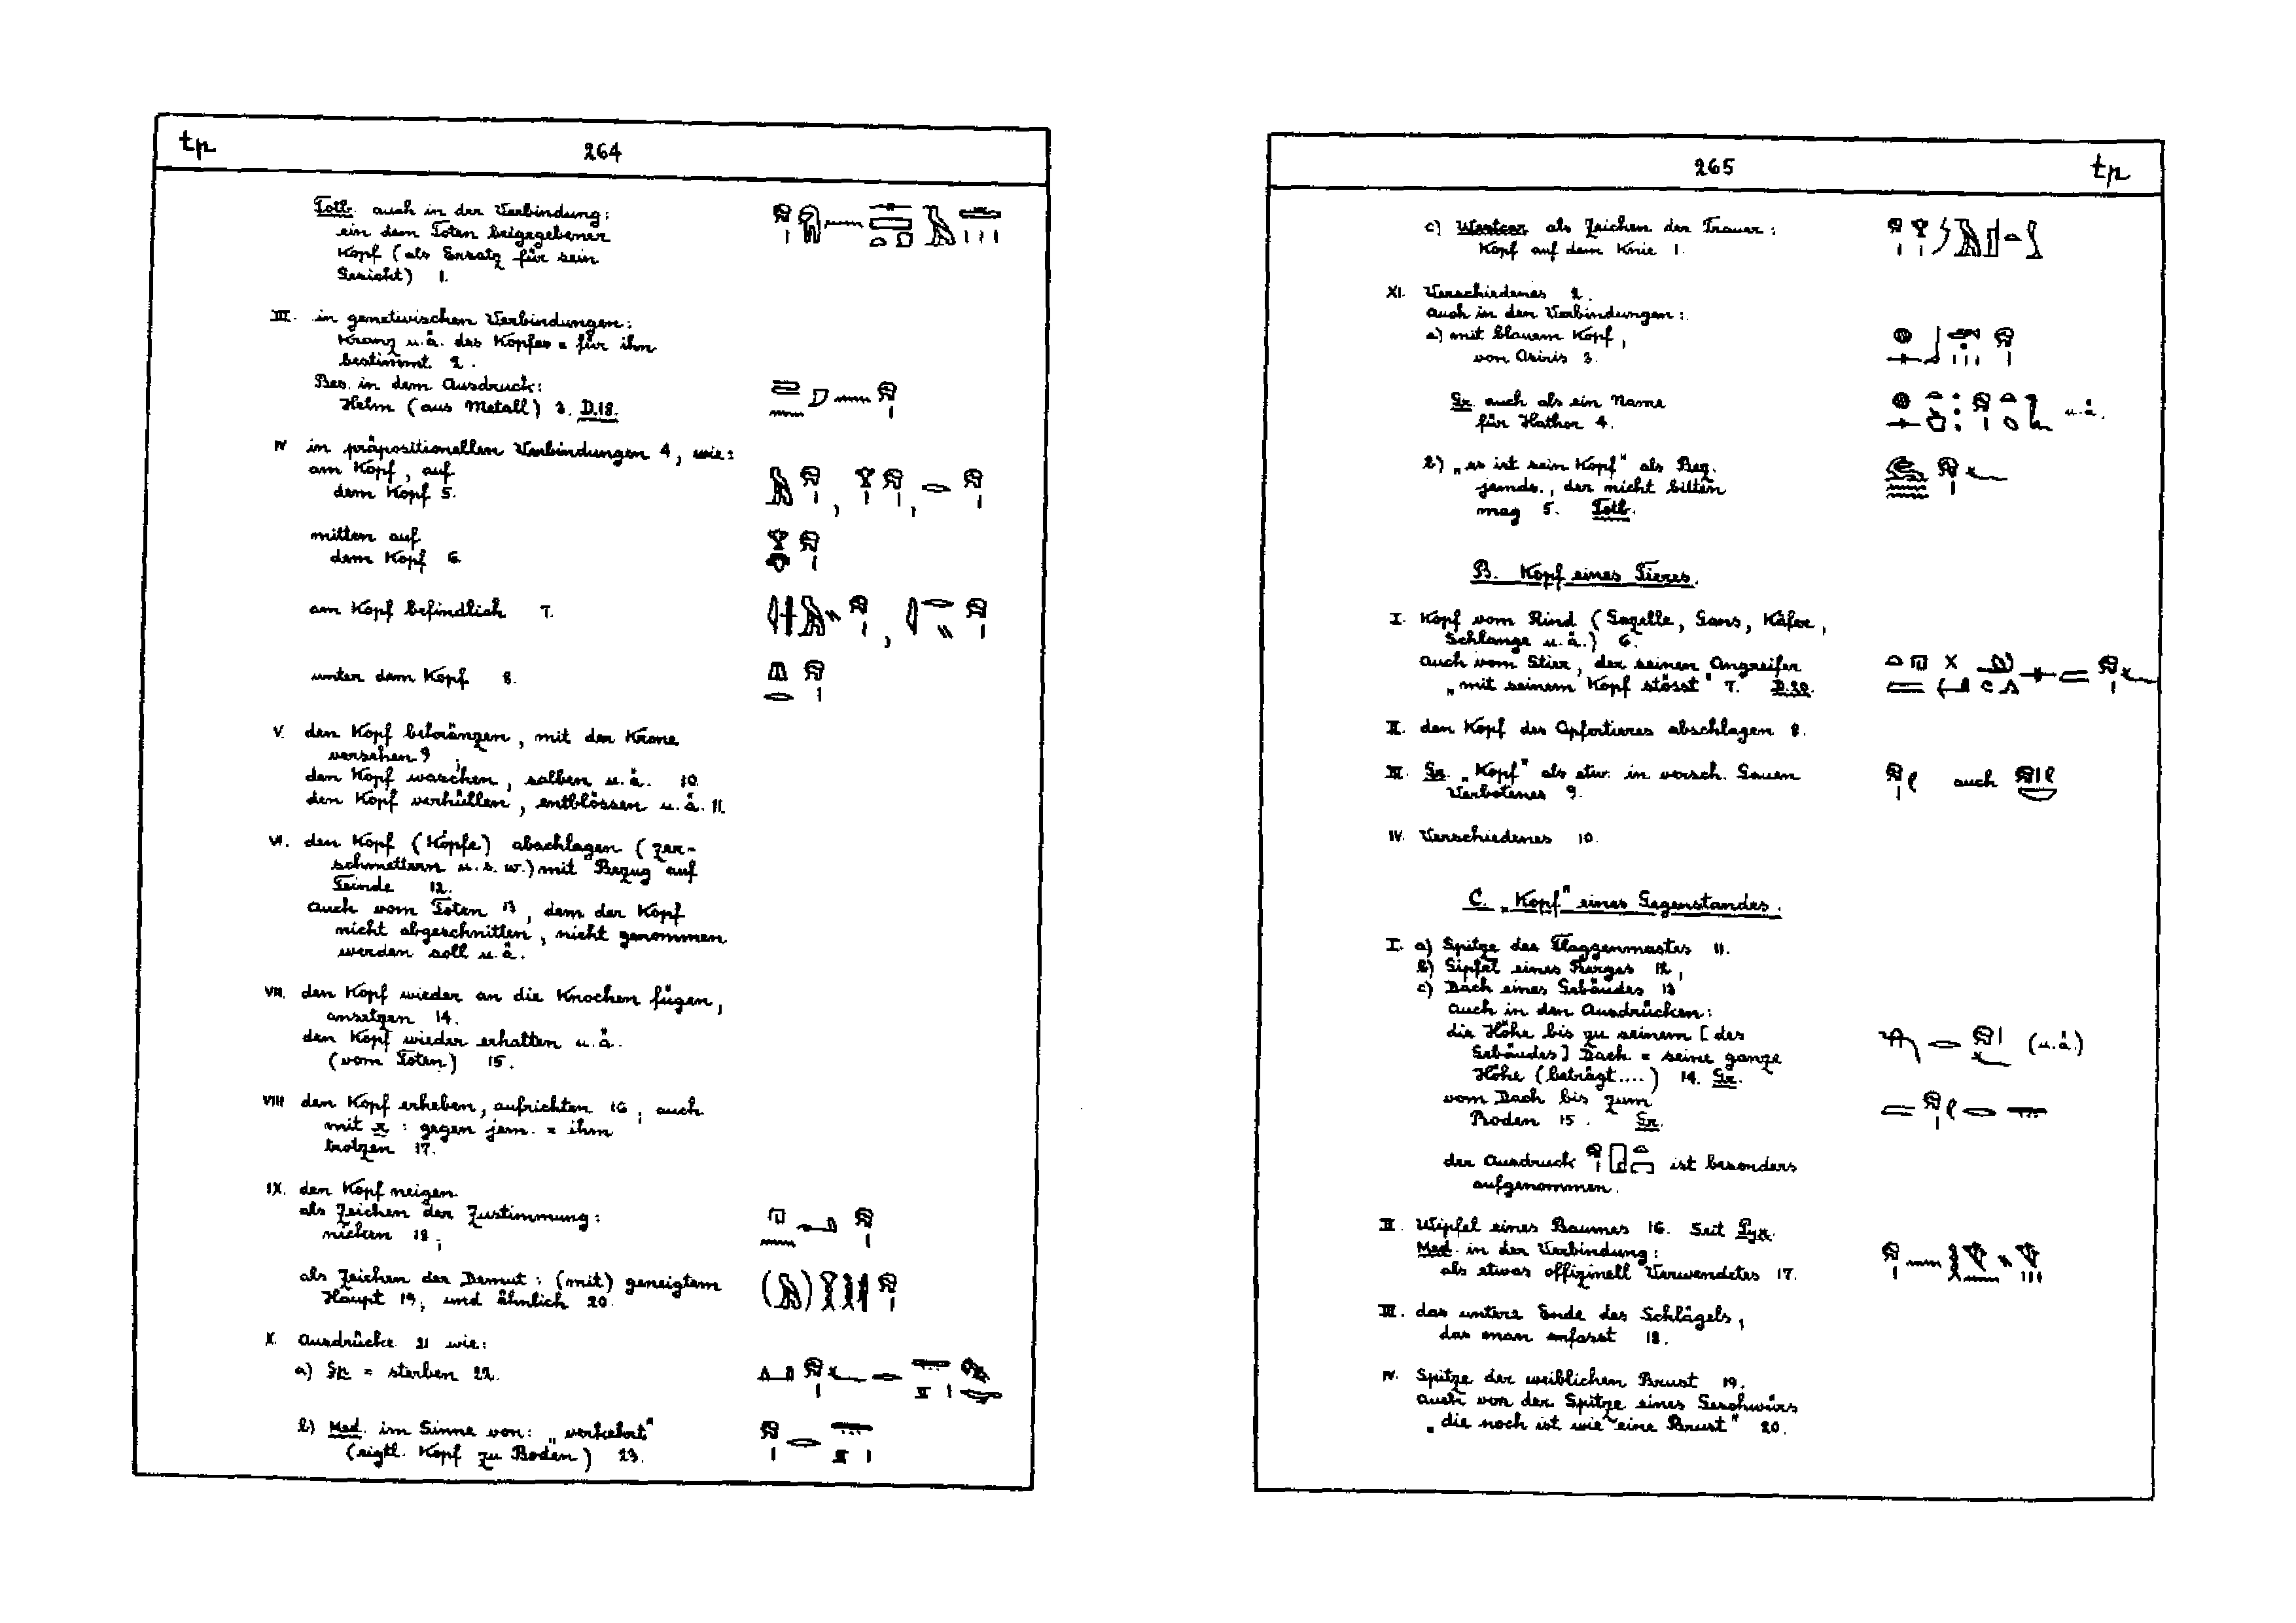 tp 264
Totb. auch in der Verbindung:
ein dem Toten beigegebener
Kopf (als Ersatz für sein
Gesicht) 1.
III. in genetivischen Verbindungen:
Kranz u.ä. des Kopfes = für ihn
bestimmt 2.
Bes. in dem Ausdruck:
Helm (aus Metall) 3. D.18.
IV in präpositionellen Verbindungen 4, wie:
am Kopf, auf
dem Kopf 5.
mitten auf
dem Kopf 6
am Kopf befindlich 7.
unter dem Kopf 8.
V. den Kopf bekränzen, mit der Krone
versehen 9;
den Kopf waschen, salben u.ä. 10
den Kopf verhüllen, entblössen u.ä. 11.
VI. den Kopf (Köpfe) abschlagen (zer-
schmettern u.s.w.) mit Bezug auf
Feinde 12.
auch vom Toten 13, dem der Kopf
nicht abgeschnitten, nicht genommen
werden soll u.ä.
VII. den Kopf wieder an die Knochen fügen,
ansetzen 14.
den Kopf wieder erhalten u.ä.
(vom Toten) 15.
VIII den Kopf erheben, aufrichten 16; auch
mit r : gegen jem. = ihm
trotzen 17.
IX. den Kopf neigen
als Zeichen der Zustimmung:
nicken 18;
als Zeichen der Demut: (mit) geneigtem
Haupt 19; und ähnlich 20.
X. Ausdrücke 21 wie:
a) Sp = sterben 22.
b) Med. im Sinne von: „verkehrt"
(eigtl. Kopf zu Boden) 23.
265 tp
c) Westcar als Zeichen der Trauer:
Kopf auf dem Knie 1.
XI. Verschiedenes 2.
auch in den Verbindungen:
a) mit blauem Kopf,
von Osiris 3.
Gr. auch als ein Name
für Hathor 4. u.ä.
b) „es ist sein Kopf" als Bez.
jemds., der nicht bitten
mag 5. Totb.
B. Kopf eines Tieres.
I. Kopf vom Rind (Gazelle, Gans, Käfer,
Schlange u.ä.) 6.
auch vom Stier, der seinen Angreifer
„mit seinem Kopf stösst" 7. D.20.
II. den Kopf des Opfertieres abschlagen 8.
III. Gr. „Kopf" als etw. in versch. Gauen
Verbotenes 9. auch
IV. Verschiedenes 10.
C. „Kopf" eines Gegenstandes.
I. a) Spitze des Flaggenmastes 11.
b) Gipfel eines Berges 12,
c) Dach eines Gebäudes 13
auch in den Ausdrücken:
die Höhe bis zu seinem [des
Gebäudes] Dach = seine ganze
Höhe (beträgt....) 14. Gr. (u.ä.)
vom Dach bis zum
Boden 15. Gr.
der Ausdruck ist besonders
aufgenommen.
II. Wipfel eines Baumes 16. Seit Pyr.
Med. in der Verbindung:
als etwas offizinell Verwendetes 17.
III. das untere Ende des Schlägels,
das man anfasst 18.
IV. Spitze der weiblichen Brust 19.
auch von der Spitze eines Geschwürs
„die noch ist wie eine Brust" 20.